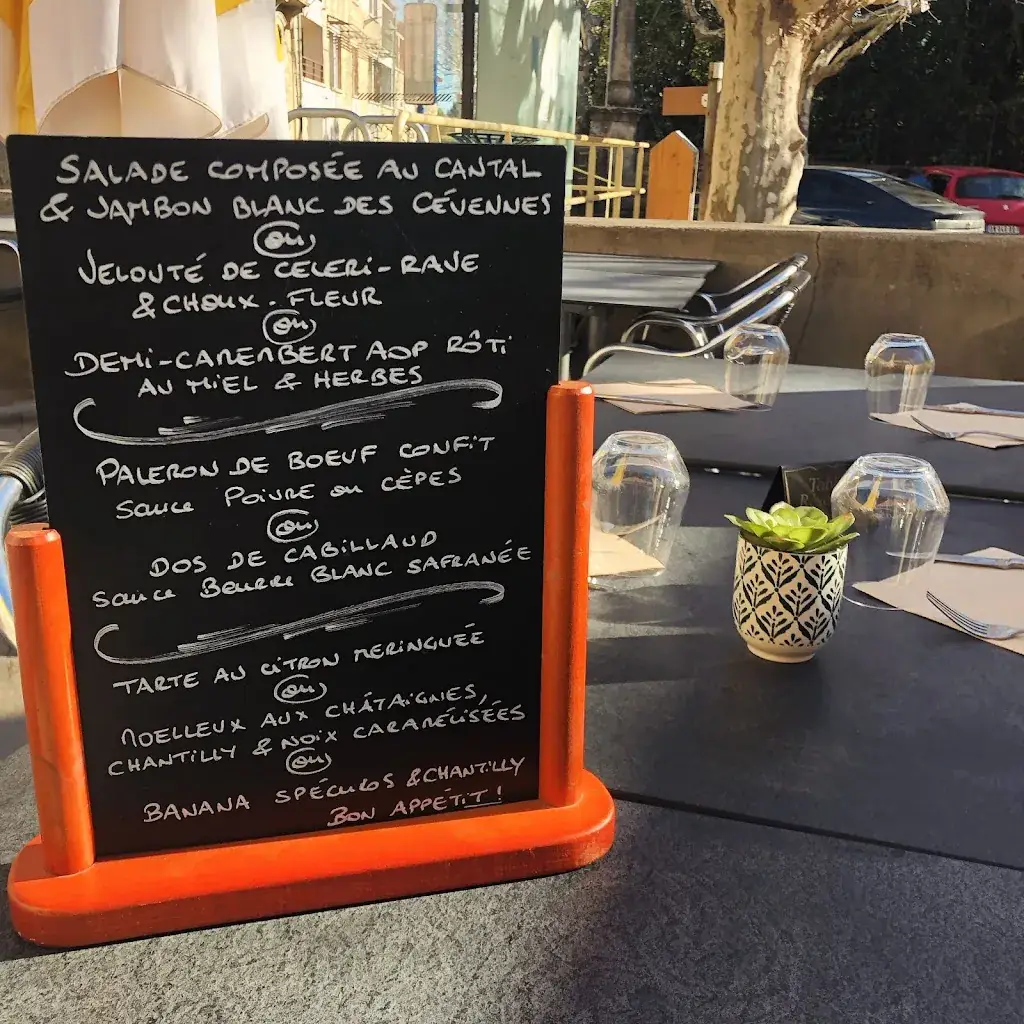 SALADE COMPOSÉE AU CANTAL
& JAMBON BLANC DES CÉVENNES
ou
VELOUTÉ DE CELERI-RAVE
& CHOUX-FLEUR
ou
DEMI-CAMEMBERT AOP RÔTI
AU MIEL & HERBES
PALERON DE BOEUF CONFIT
Sauce POIVRE ou CÈPES
ou
DOS DE CABILLAUD
Sauce BEURRE BLANC SAFRANÉE
TARTE AU CITRON MERINGUÉE
ou
MOELLEUX AUX CHÂTAIGNES,
CHANTILLY & NOIX CARAMÉLISÉES
ou
BANANA SPÉCULOS & CHANTILLY
BON APPÉTIT!